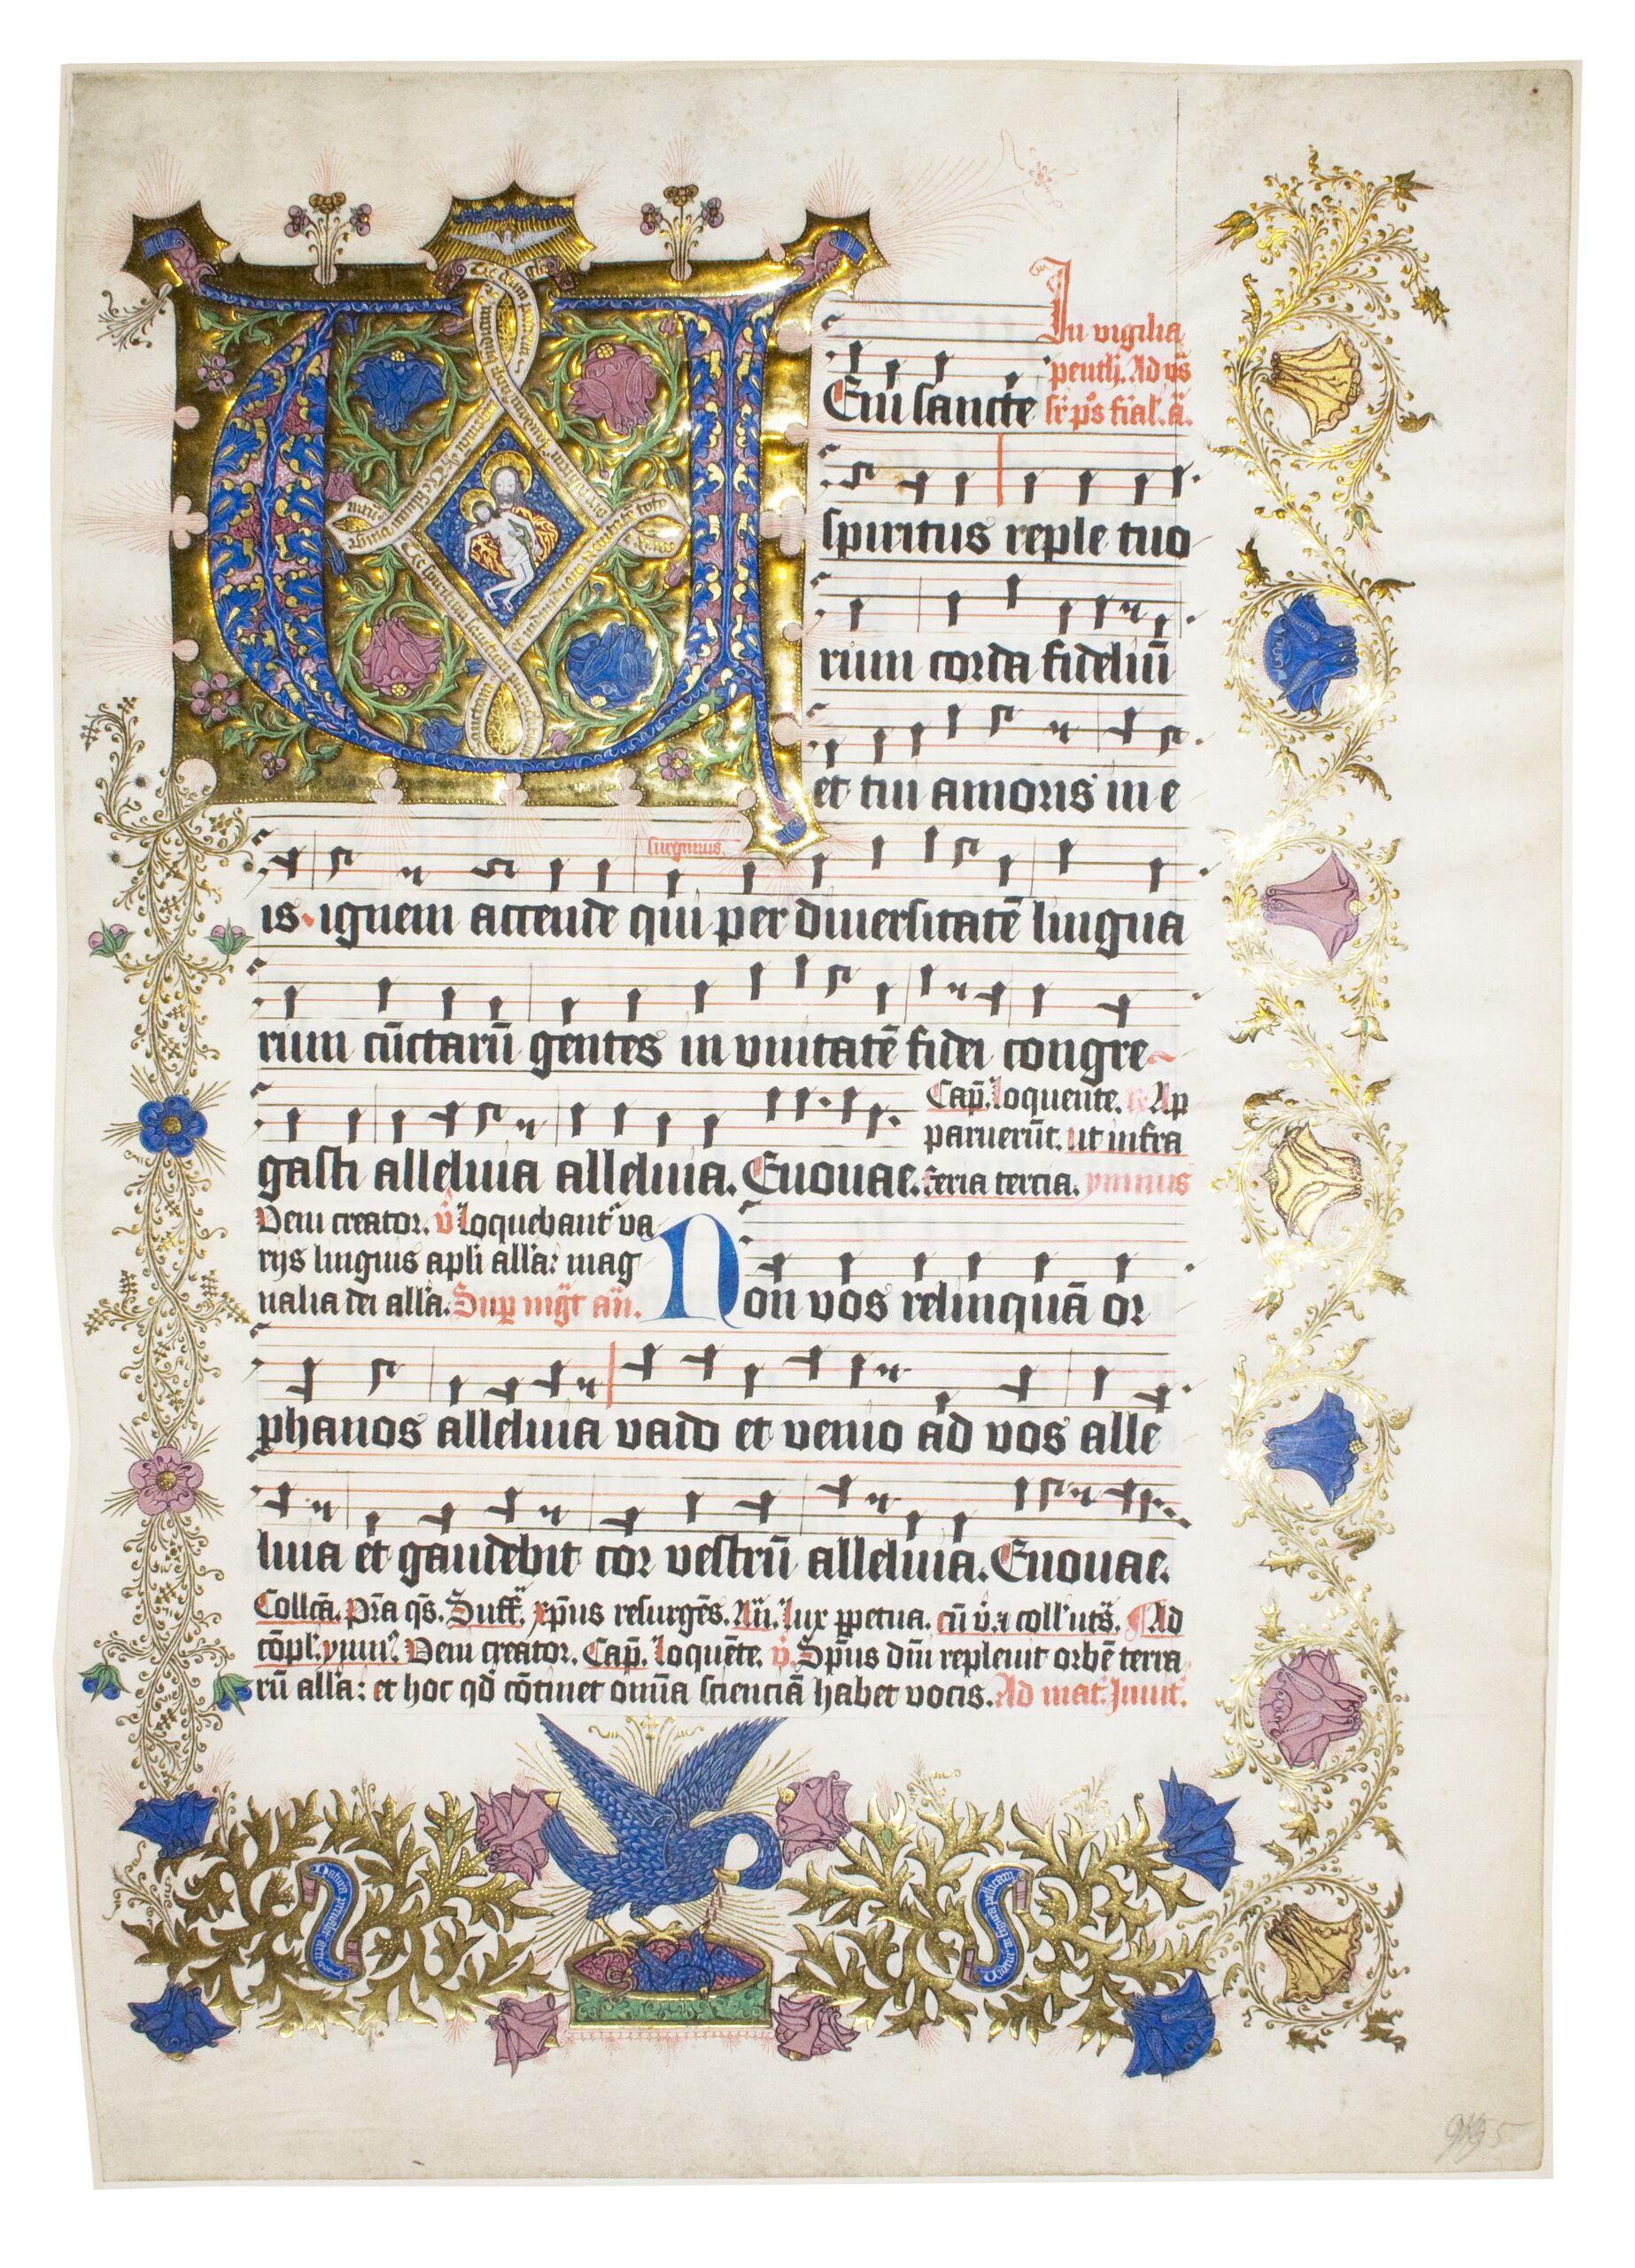 In vigilia
pentħ. Ad vs̄
Eni sancte sr̄ ps̄ fial'. a.
spiritus reple tuo
rum corda fideliū
et tui amoris in e
is ignem accende qui per diuersitatē lingua
rum cūctarū gentes in vnitatē fidei congre
Cap̄. Loquente. R Ap
paruerūt. ut infra
gasti alleluia alleluia. Euouae. feria tercia. ymnus
Veni creator. v̄ Loquebant' va
rijs linguis apl'i all'a: mag
nalia dei all'a. Sup mḡt an̄.
Non vos relinquā or
phanos alleluia vado et venio ad vos alle
luia et gaudebit cor vestrū alleluia. Euouae.
Collc̄a. Pr̄a qs̄. Suff. xp̄us resurgēs. An̄. Lux ꝑpetua. cū v̄. ⁊ coll' uts̄. Ad
cōpl'. ymn9. Veni creator. Cap̄. Loquēte. v̄. Sp̄us dn̄i repleuit orbē terra
rū all'a: et hoc qd̄ cōtinet omīa scienciā habet vocis. Ad mat'. Inuit'.